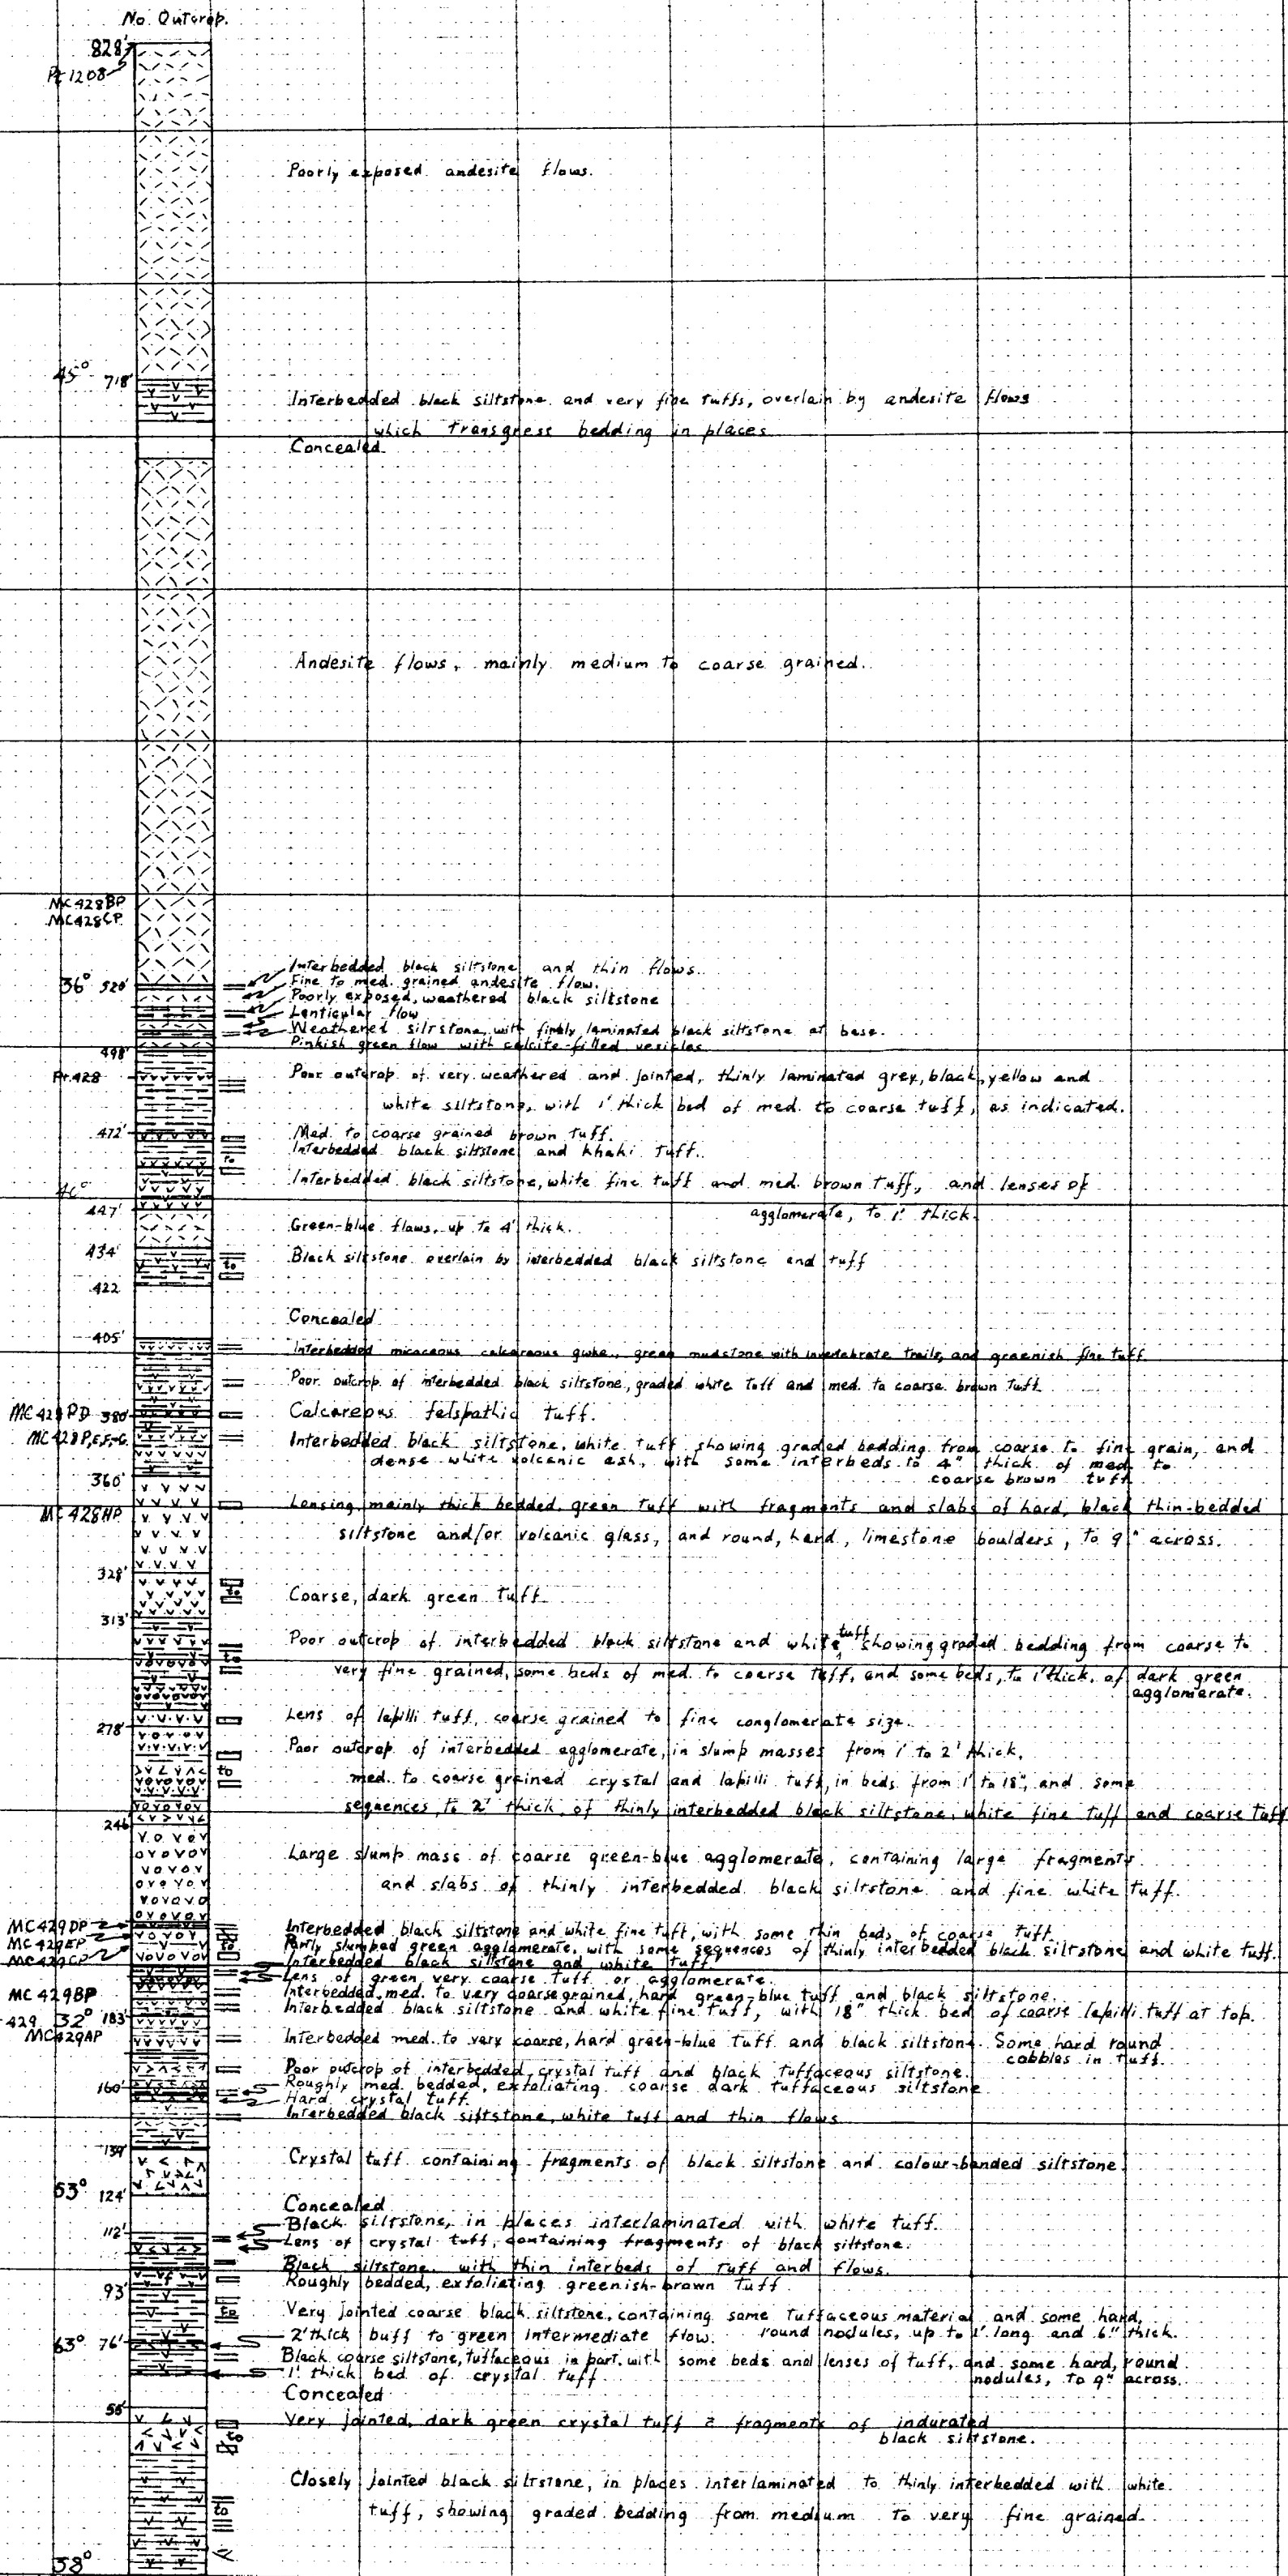 No. Outcrop.
828'
Pt 1208
Poorly exposed andesite flows.
45° 718'
Interbedded black siltstone and very fine tuffs, overlain by andesite flows
which transgress bedding in places
Concealed
Andesite flows, mainly medium to coarse grained.
MC428BP
MC428CP
Interbedded black siltstone and thin flows.
36° 520'
Fine to med. grained andesite flow.
Poorly exposed, weathered black siltstone
Lenticular flow
Weathered siltstone, with finely laminated black siltstone at base.
Pinkish green flow with calcite-filled vesicles
498'
Pt. 428
Poor outcrop of very weathered and jointed, thinly laminated grey, black, yellow and
white siltstone, with 1' thick bed of med. to coarse tuff, as indicated.
472'
Med. to coarse grained brown tuff.
Interbedded black siltstone and khaki tuff.
to
Interbedded black siltstone, white fine tuff and med. brown tuff, and lenses of
agglomerate, to 1' thick
447'
Green-blue flows, up to 4' thick.
434'
Black siltstone overlain by interbedded black siltstone and tuff
to
422
Concealed
405'
Interbedded micaceous calcareous gwke., green mudstone with invertebrate trails, and greenish fine tuff
Poor outcrop of interbedded black siltstone, graded white tuff and med. to coarse brown tuff
MC428PD 380'
Calcareous felspathic tuff.
MC428P,E,F,G.
Interbedded black siltstone, white tuff showing graded bedding from coarse to fine grain, and
dense white volcanic ash, with some interbeds to 4" thick of med. to
coarse brown tuff
360'
MC428HP
Lensing mainly thick bedded, green tuff with fragments and slabs of hard, black thin-bedded
siltstone and/or volcanic glass, and round, hard, limestone boulders, to 9" across.
328'
to
Coarse, dark green tuff
313'
Poor outcrop of interbedded black siltstone and white tuff showing graded bedding from coarse to
to
very fine grained, some beds of med. to coarse tuff, and some beds, to 1' thick, of dark green
agglomerate.
Lens of lapilli tuff, coarse grained to fine conglomerate size.
278'
Poor outcrop of interbedded agglomerate, in slump masses from 1' to 2' thick,
to
med. to coarse grained crystal and lapilli tuff, in beds from 1" to 18", and some
sequences to 2' thick, of thinly interbedded black siltstone, white fine tuff and coarse tuff
246'
Large slump mass of coarse green-blue agglomerate, containing large fragments
and slabs of thinly interbedded black siltstone and fine white tuff.
MC429DP
Interbedded black siltstone and white fine tuft, with some thin beds of coarse tuff.
MC429EP
to
Partly slumped green agglomerate, with some sequences of thinly interbedded black siltstone and white tuff.
MC429CP
Interbedded black siltstone and white tuff
Lens of green, very coarse tuff or agglomerate.
MC429BP
Interbedded, med. to very coarse grained, hard green-blue tuff and black siltstone.
Interbedded black siltstone and white fine tuff, with 18" thick bed of coarse lapilli tuff at top.
429 32° 183'
MC429AP
Interbedded med. to very coarse, hard green-blue tuff and black siltstone. Some hard round
cobbles in tuff.
Poor outcrop of interbedded, crystal tuff and black tuffaceous siltstone.
160'
Roughly med. bedded, exfoliating coarse dark tuffaceous siltstone
Hard crystal tuff.
Interbedded black siltstone, white tuff and thin flows
139'
Crystal tuff containing fragments of black siltstone and colour-banded siltstone
53° 124'
Concealed
Black siltstone, in places interlaminated with white tuff.
112'
Lens of crystal tuff, containing fragments of black siltstone.
Black siltstone with thin interbeds of tuff and flows.
93'
Roughly bedded, exfoliating greenish-brown tuff
to
Very jointed coarse black siltstone, containing some tuffaceous material and some hard,
round nodules, up to 1' long and 6" thick.
63° 76'
2' thick buff to green intermediate flow.
Black coarse siltstone, tuffaceous in part, with some beds and lenses of tuff, and some hard, round
nodules, to 9" across.
1' thick bed of crystal tuff
Concealed
to
Very jointed, dark green crystal tuff c̄ fragments of indurated
black siltstone.
Closely jointed black siltstone, in places interlaminated to thinly interbedded with white
to
tuff, showing graded bedding from medium to very fine grained